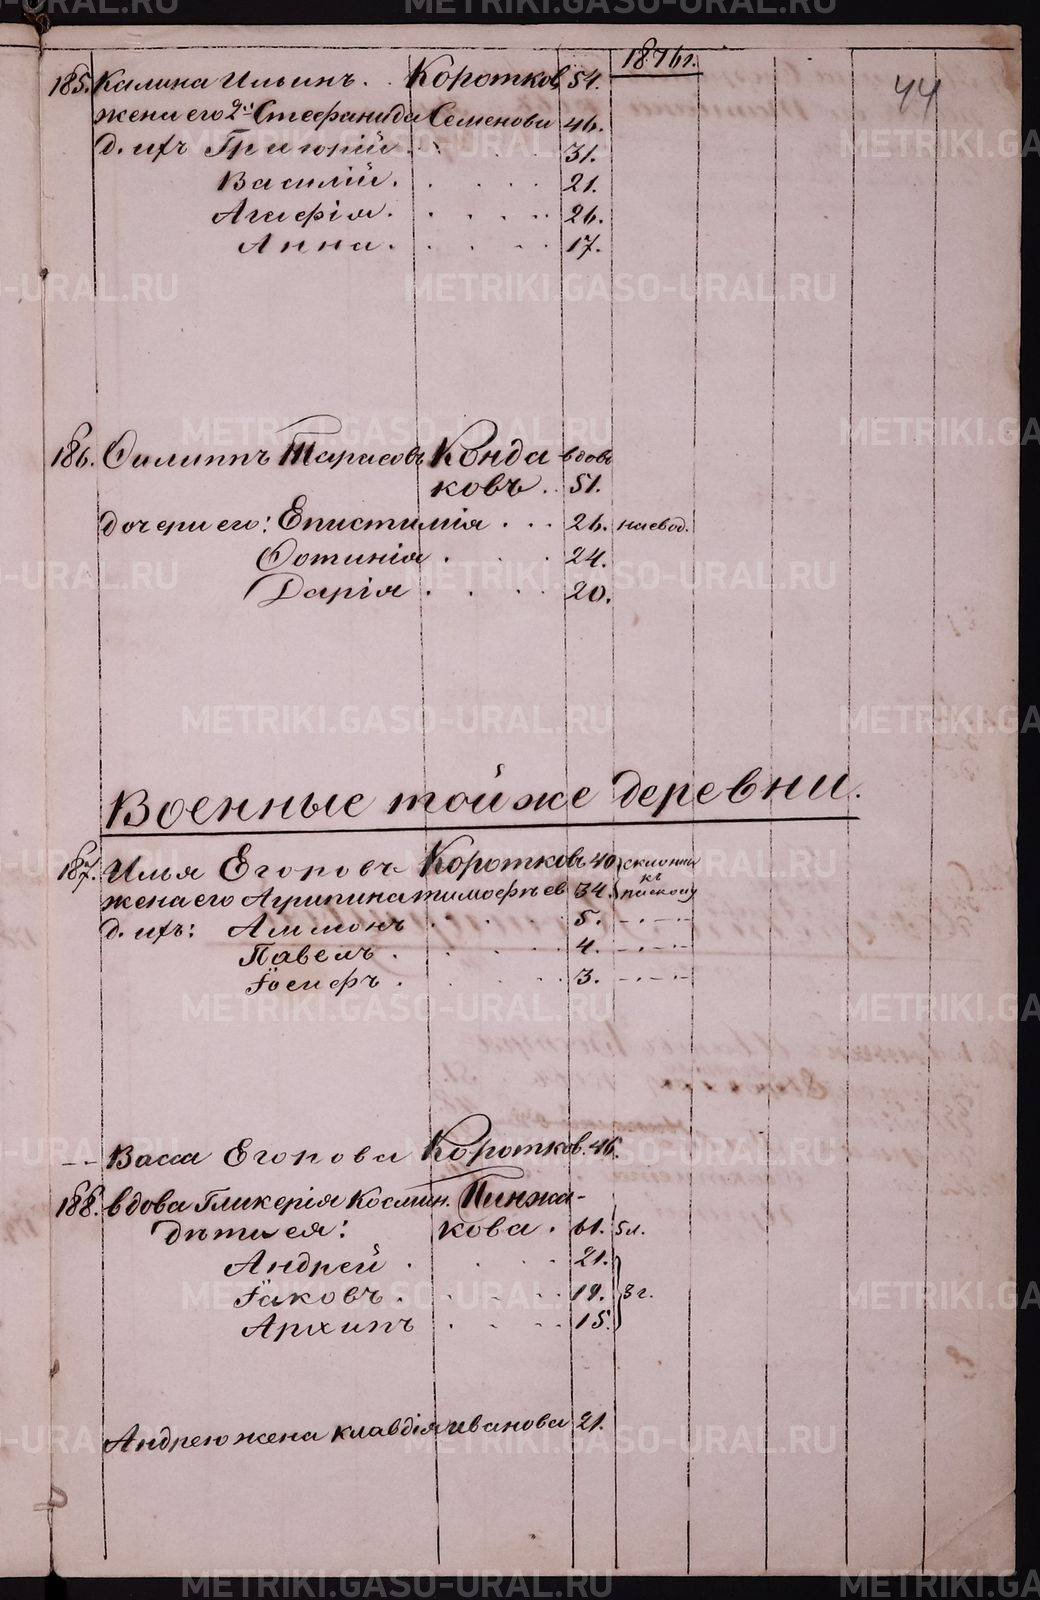 1876 г.
44
185. Калина Ильинъ. Коротков 54.
жена его 2я Стефанида Семенова 46.
д. ихъ Григорій 31.
Василій. 21.
Агафія. 26.
Анна. 17.
186. Филиппъ Тарасовъ Конда вдовъ
ковъ. 51.
дочери его: Епистимія 26. наевод.
Фотинія 24.
Дарія 20.
Военные той же деревни.
187. Илья Егоровъ Коротковъ 40. склонны
къ
жена его Агрипина тимофѣев 34. раскому
д. ихъ: Аммонъ 5.
Павелъ. 4.
Іосифъ. 3.
-- Васса Егорова Коротков. 46.
188. вдова Гликерія Космин. Пинжа-
дѣти ея: кова. 61. 5 л.
Андрей 21.
Іаковъ. 19. 3 г.
Архипъ 15.
Андрею жена Клавдія иванова 21.
METRIKI.GASO-URAL.RU